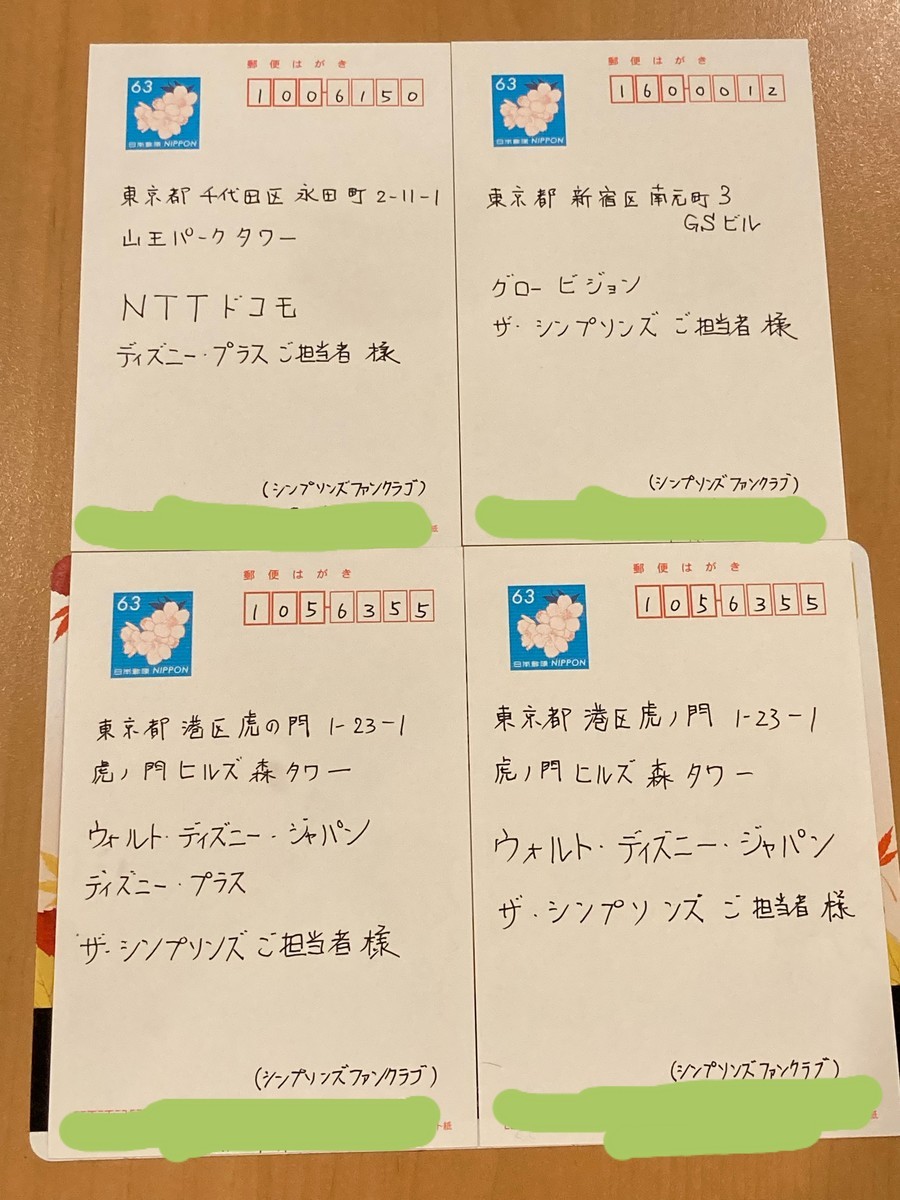 郵便はがき
63
日本郵便 NIPPON
1006150
東京都 千代田区 永田町 2-11-1
山王パークタワー
NTTドコモ
ディズニー・プラス ご担当者 様
(シンプソンズファンクラブ)
紙
郵便はがき
63
日本郵便 NIPPON
1600012
東京都 新宿区 南元町 3
GSビル
グロービジョン
ザ・シンプソンズ ご担当者 様
(シンプソンズファンクラブ)
郵便はがき
63
日本郵便 NIPPON
1056355
東京都 港区 虎の門 1-23-1
虎ノ門ヒルズ 森タワー
ウォルト・ディズニー・ジャパン
ディズニー・プラス
ザ・シンプソンズ ご担当者 様
(シンプソンズファンクラブ)
紙
郵便はがき
63
日本郵便 NIPPON
1056355
東京都 港区 虎ノ門 1-23-1
虎ノ門ヒルズ 森タワー
ウォルト・ディズニー・ジャパン
ザ・シンプソンズ ご担当者 様
(シンプソンズファンクラブ)
紙